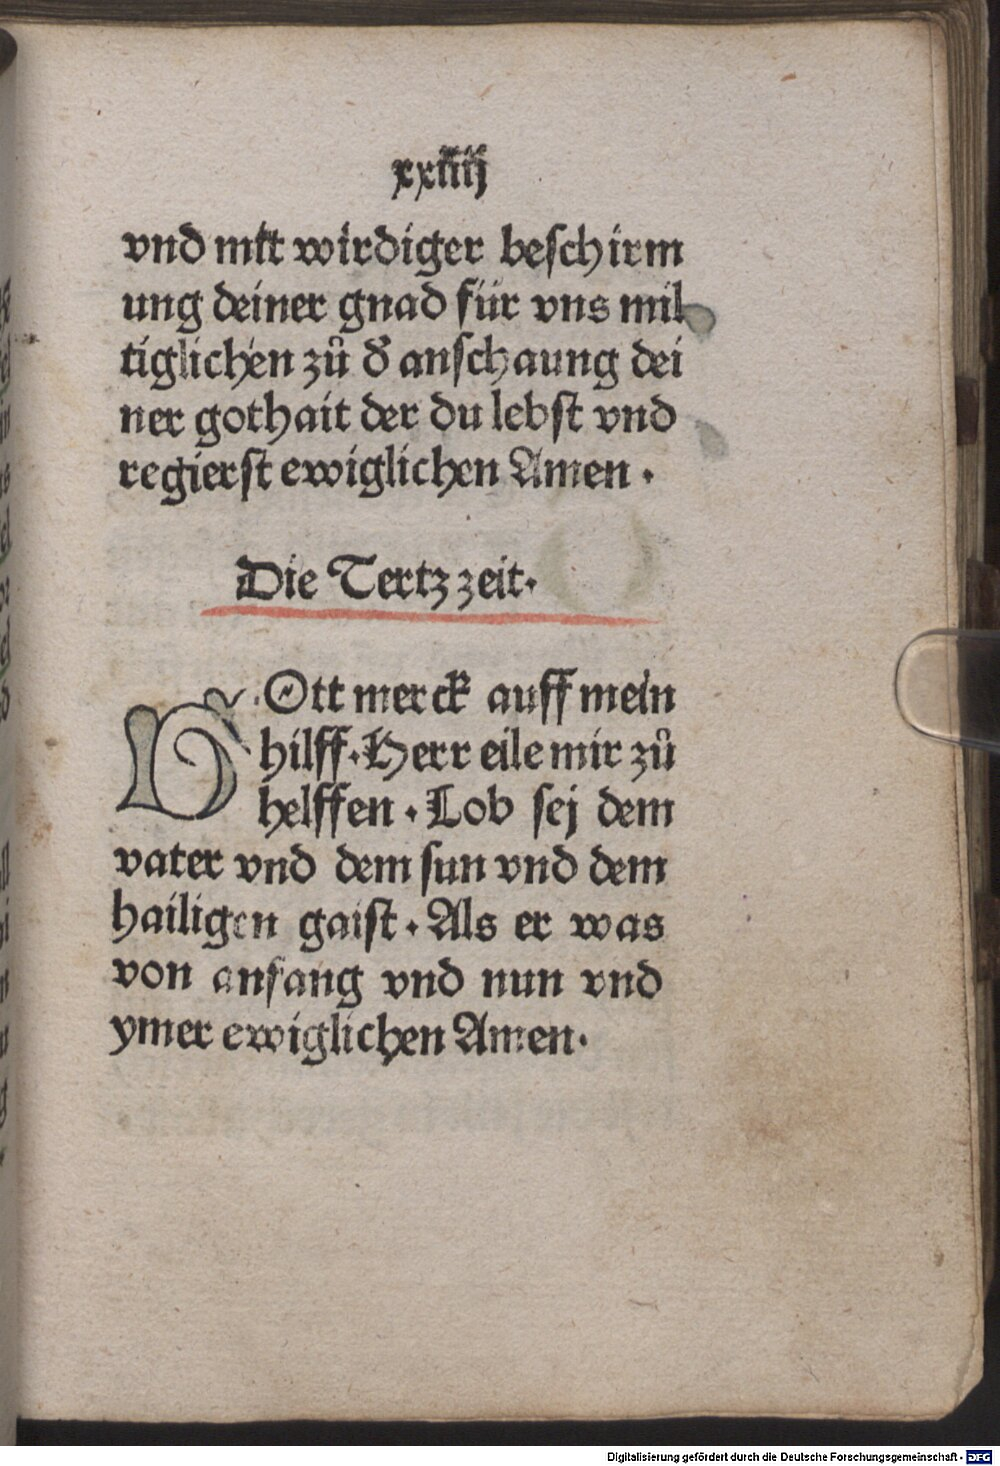 xxiiij
vnd mit wirdiger beſchirm
ung deiner gnad für vns mil
tiglichen zů d᷑ anſchaung dei
ner gothait der du lebſt vnd
regierſt ewiglichen Amen ·
Die Tertz zeit·
GOtt merck auff mein
hilff·Herr eile mir zů
helffen · Lob ſej dem
vater vnd dem ſun vnd dem
hailigen gaiſt · Als er was
von anfang vnd nun vnd
ymer ewiglichen Amen·
Digitalisierung gefördert durch die Deutsche Forschungsgemeinschaft - DFG